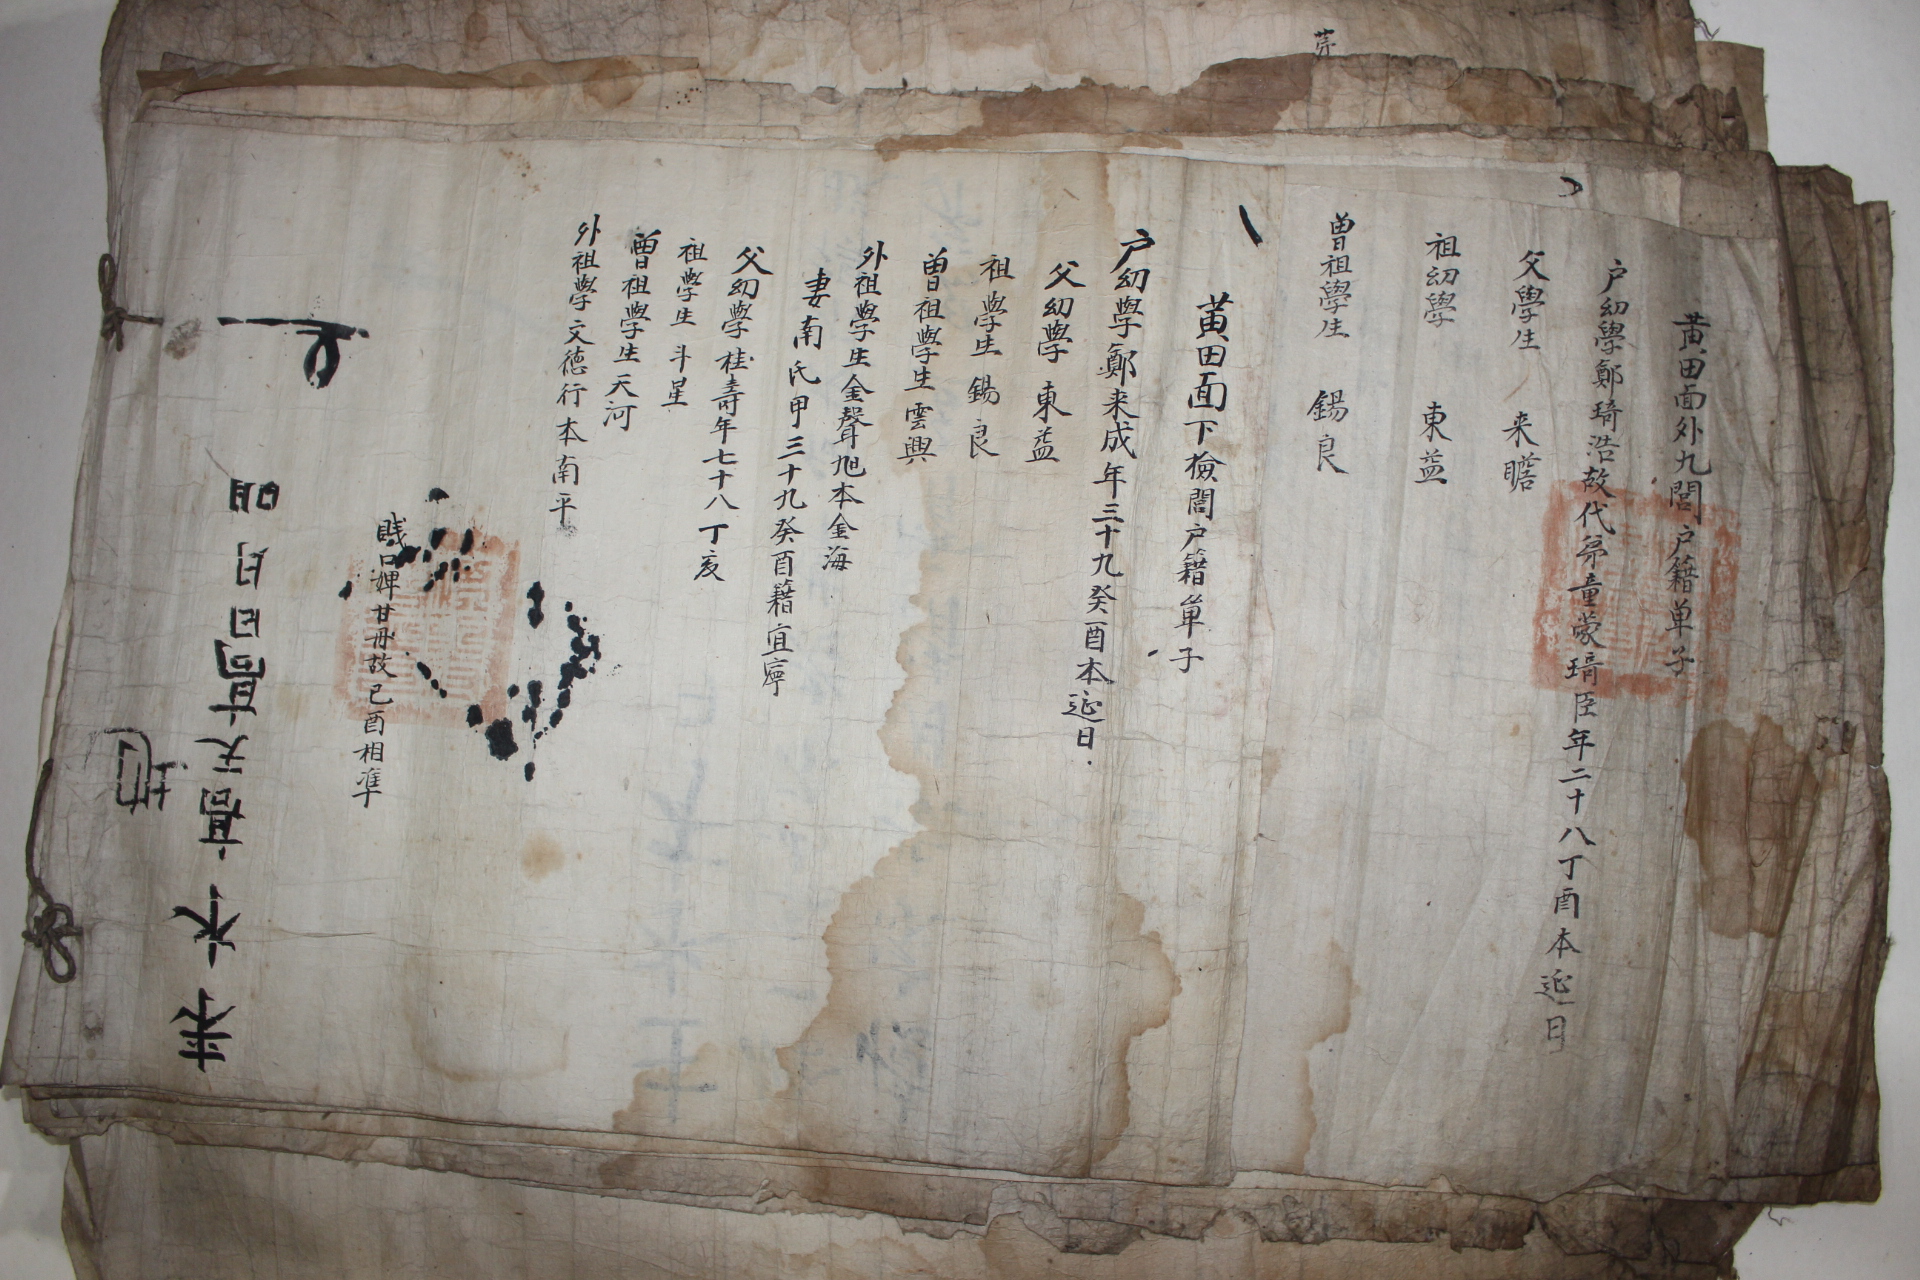 黃田面外九閭户籍单子
户幼學鄭琦浩故代弟童蒙琦臣年二十八丁酉本延日
父學生 来瞻
祖幼學 東益
曽祖學生 錫良
黃田面下檢閭户籍單子
户幼學鄭来成年三十九癸酉本延日
父幼學東益
祖學生錫良
曽祖學生雲興
外祖學生金聲旭本金海
妻南氏甲三十九癸酉籍宜寧
父幼學桂壽年七十八丁亥
祖學生斗星
曽祖學生天河
外祖學文德行本南平
賎口婢甘丹故己酉相準
明月日高天高水来
地